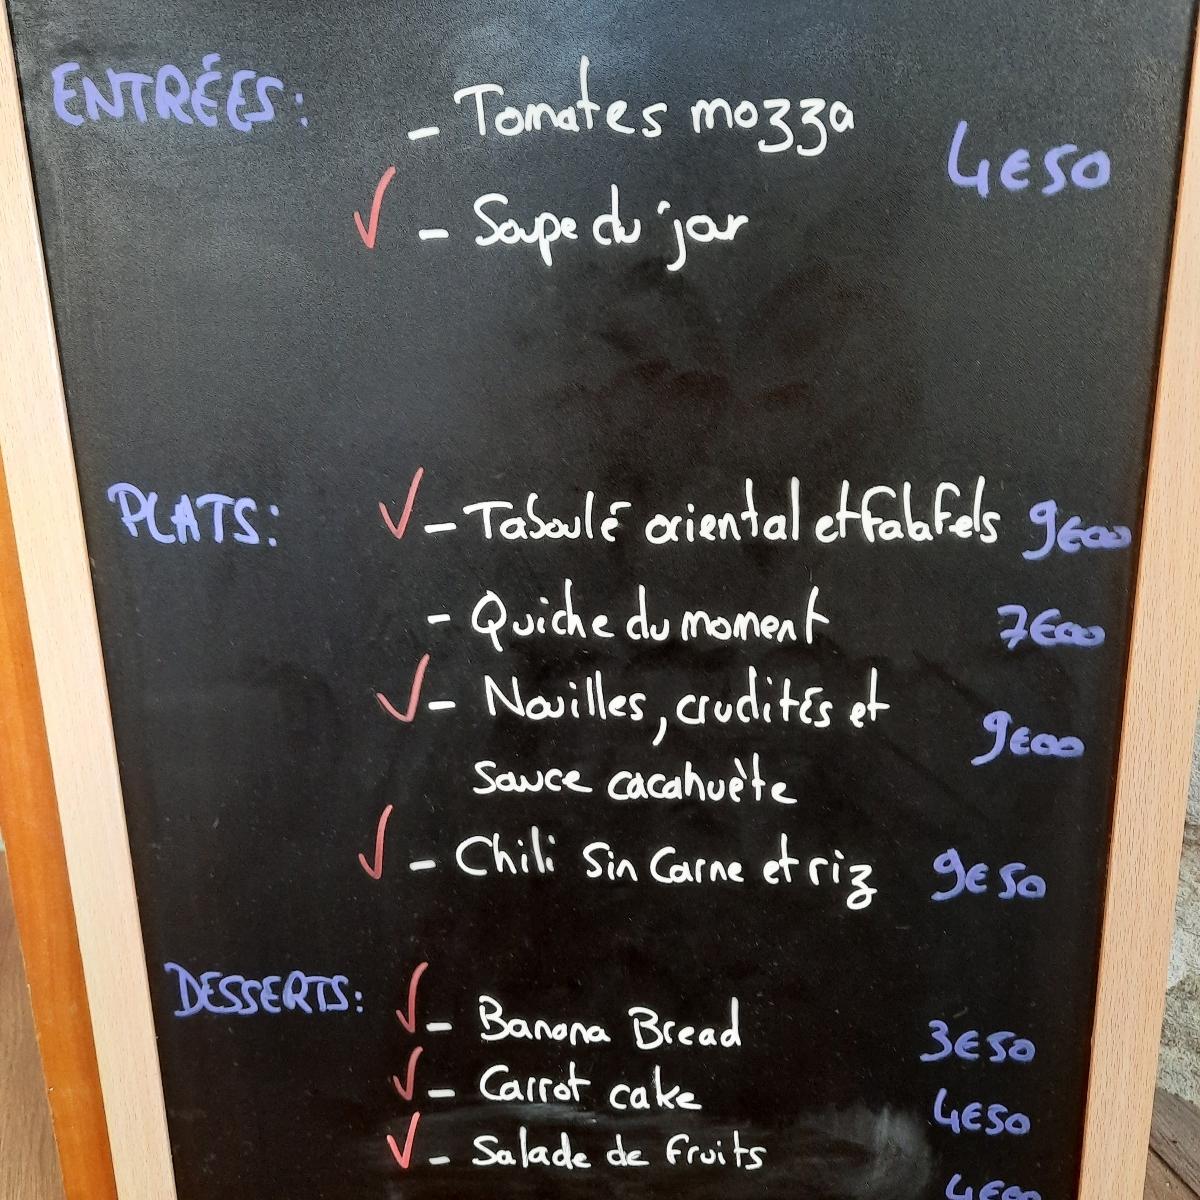 ENTRÉES: - Tomates mozza
4€50
✓ - Soupe du jour
PLATS: ✓ - Taboulé oriental et falafels 9€00
- Quiche du moment 7€00
✓ - Nouilles, crudités et
sauce cacahuète 9€00
✓ - Chili Sin Carne et riz 9€50
DESSERTS: ✓ - Banana Bread 3€50
✓ - Carrot cake 4€50
✓ - Salade de fruits
4€00